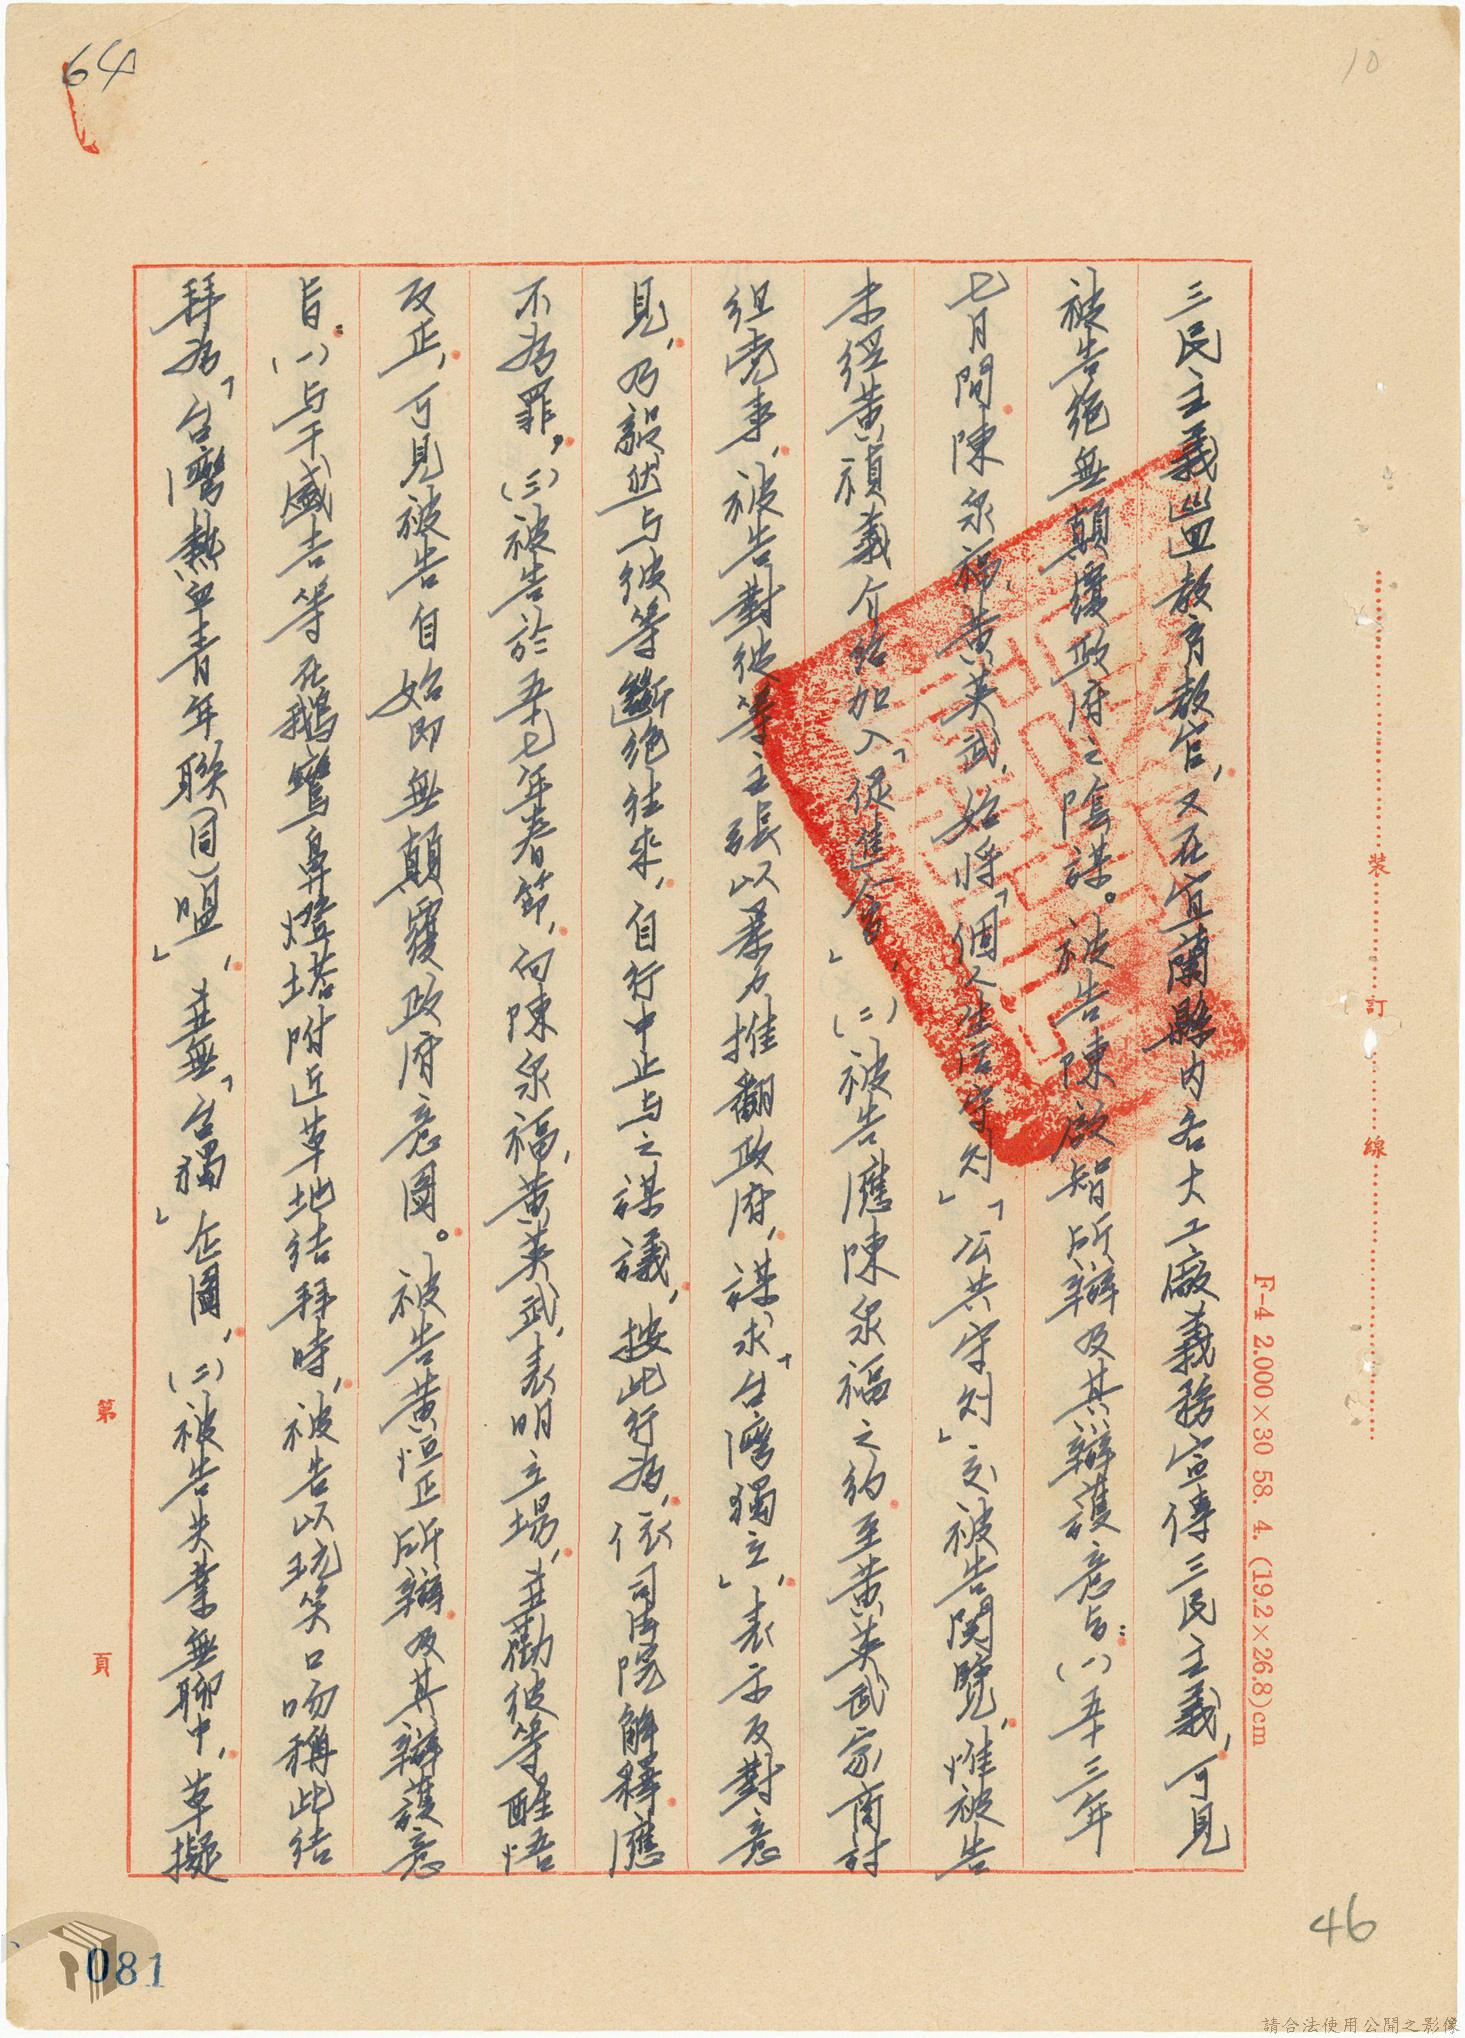 64
10
三民主義巡迴教育教官，又在宜蘭縣內各大工廠義務宣傳三民主義，可見
被告絕無顛覆政府之陰謀。被告陳啟智所辯及其辯護意旨：(一)五十三年
七月間陳泉福、黃英武，始將「個人生活守則」「公共守則」交被告閱覽，惟被告
未經黃禎義介紹加入「促進會」，(二)被告應陳泉福之約至黃英武家商討
組党事，被告對彼等主張以暴力推翻政府，謀求「台灣獨立」，表示反對意
見，乃毅然与彼等斷絕往來，自行中止与之謀議，按此行為，依司法院解釋應
不為罪。(三)被告於五七年春節，向陳泉福，黃英武，表明立場，並勸彼等醒悟
反正，可見被告自始即無顛覆政府意圖。被告黃恒正所辯及其辯護意
旨：(一)与干盛吉等在鵝鸞鼻燈塔附近草地結拜時，被告以玩笑口吻稱此結
拜為「台灣熱血青年聯(同)盟」，並無「台獨」企圖，(二)被告失業無聊中，草擬
裝
訂
線
F-4 2.000×30 58. 4. (19.2×26.8)cm
第
頁
46
081
請合法使用公開之影像